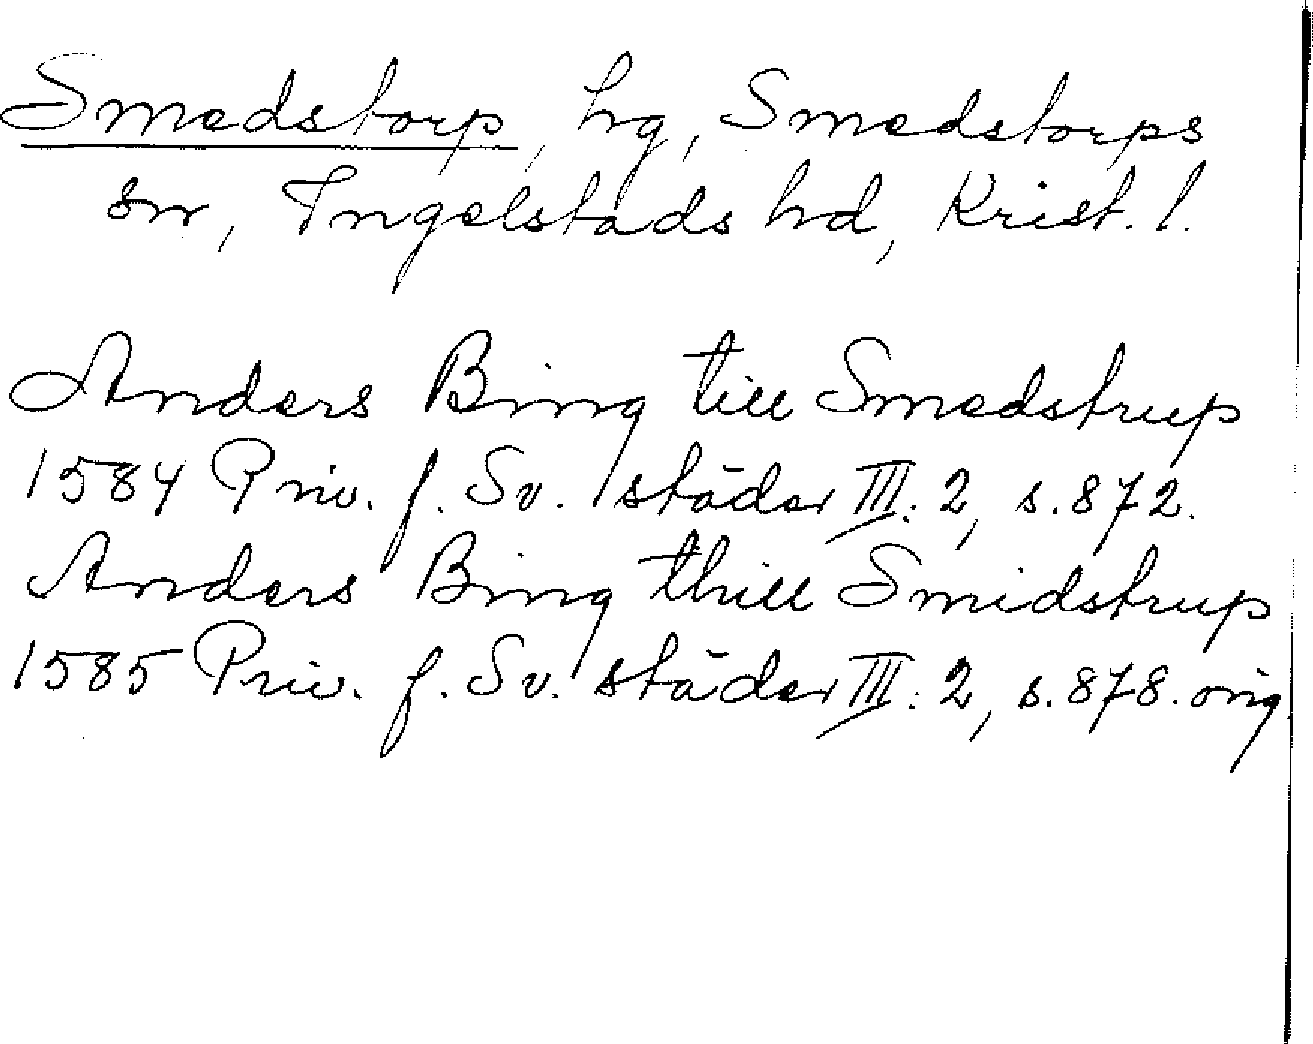 Smedstorp, hg, Smedstorps
sn, Ingelstads hd, Krist. l.
Anders Bing till Smedstrup
1584 Priv. f. Sv. städer III: 2, s. 872.
Anders Bing thill Smidstrup
1585 Priv. f. Sv. städer III: 2, s. 878. orig